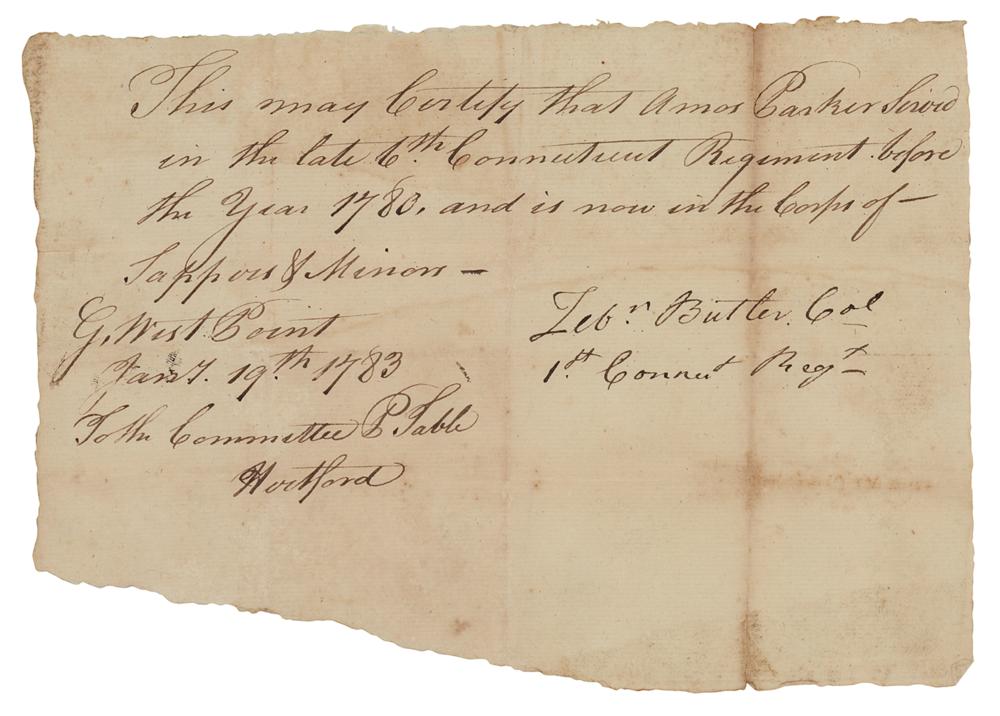 This may Certify that Amos Parker Served
in the late 6th Connecticut Regiment before
the Year 1780, and is now in the Corps of —
Sappers & Miners —
G, West Point
Jany. 19th 1783
Zebn Butler Col
1st Connect Regt
To the Committee P Table
Hartford